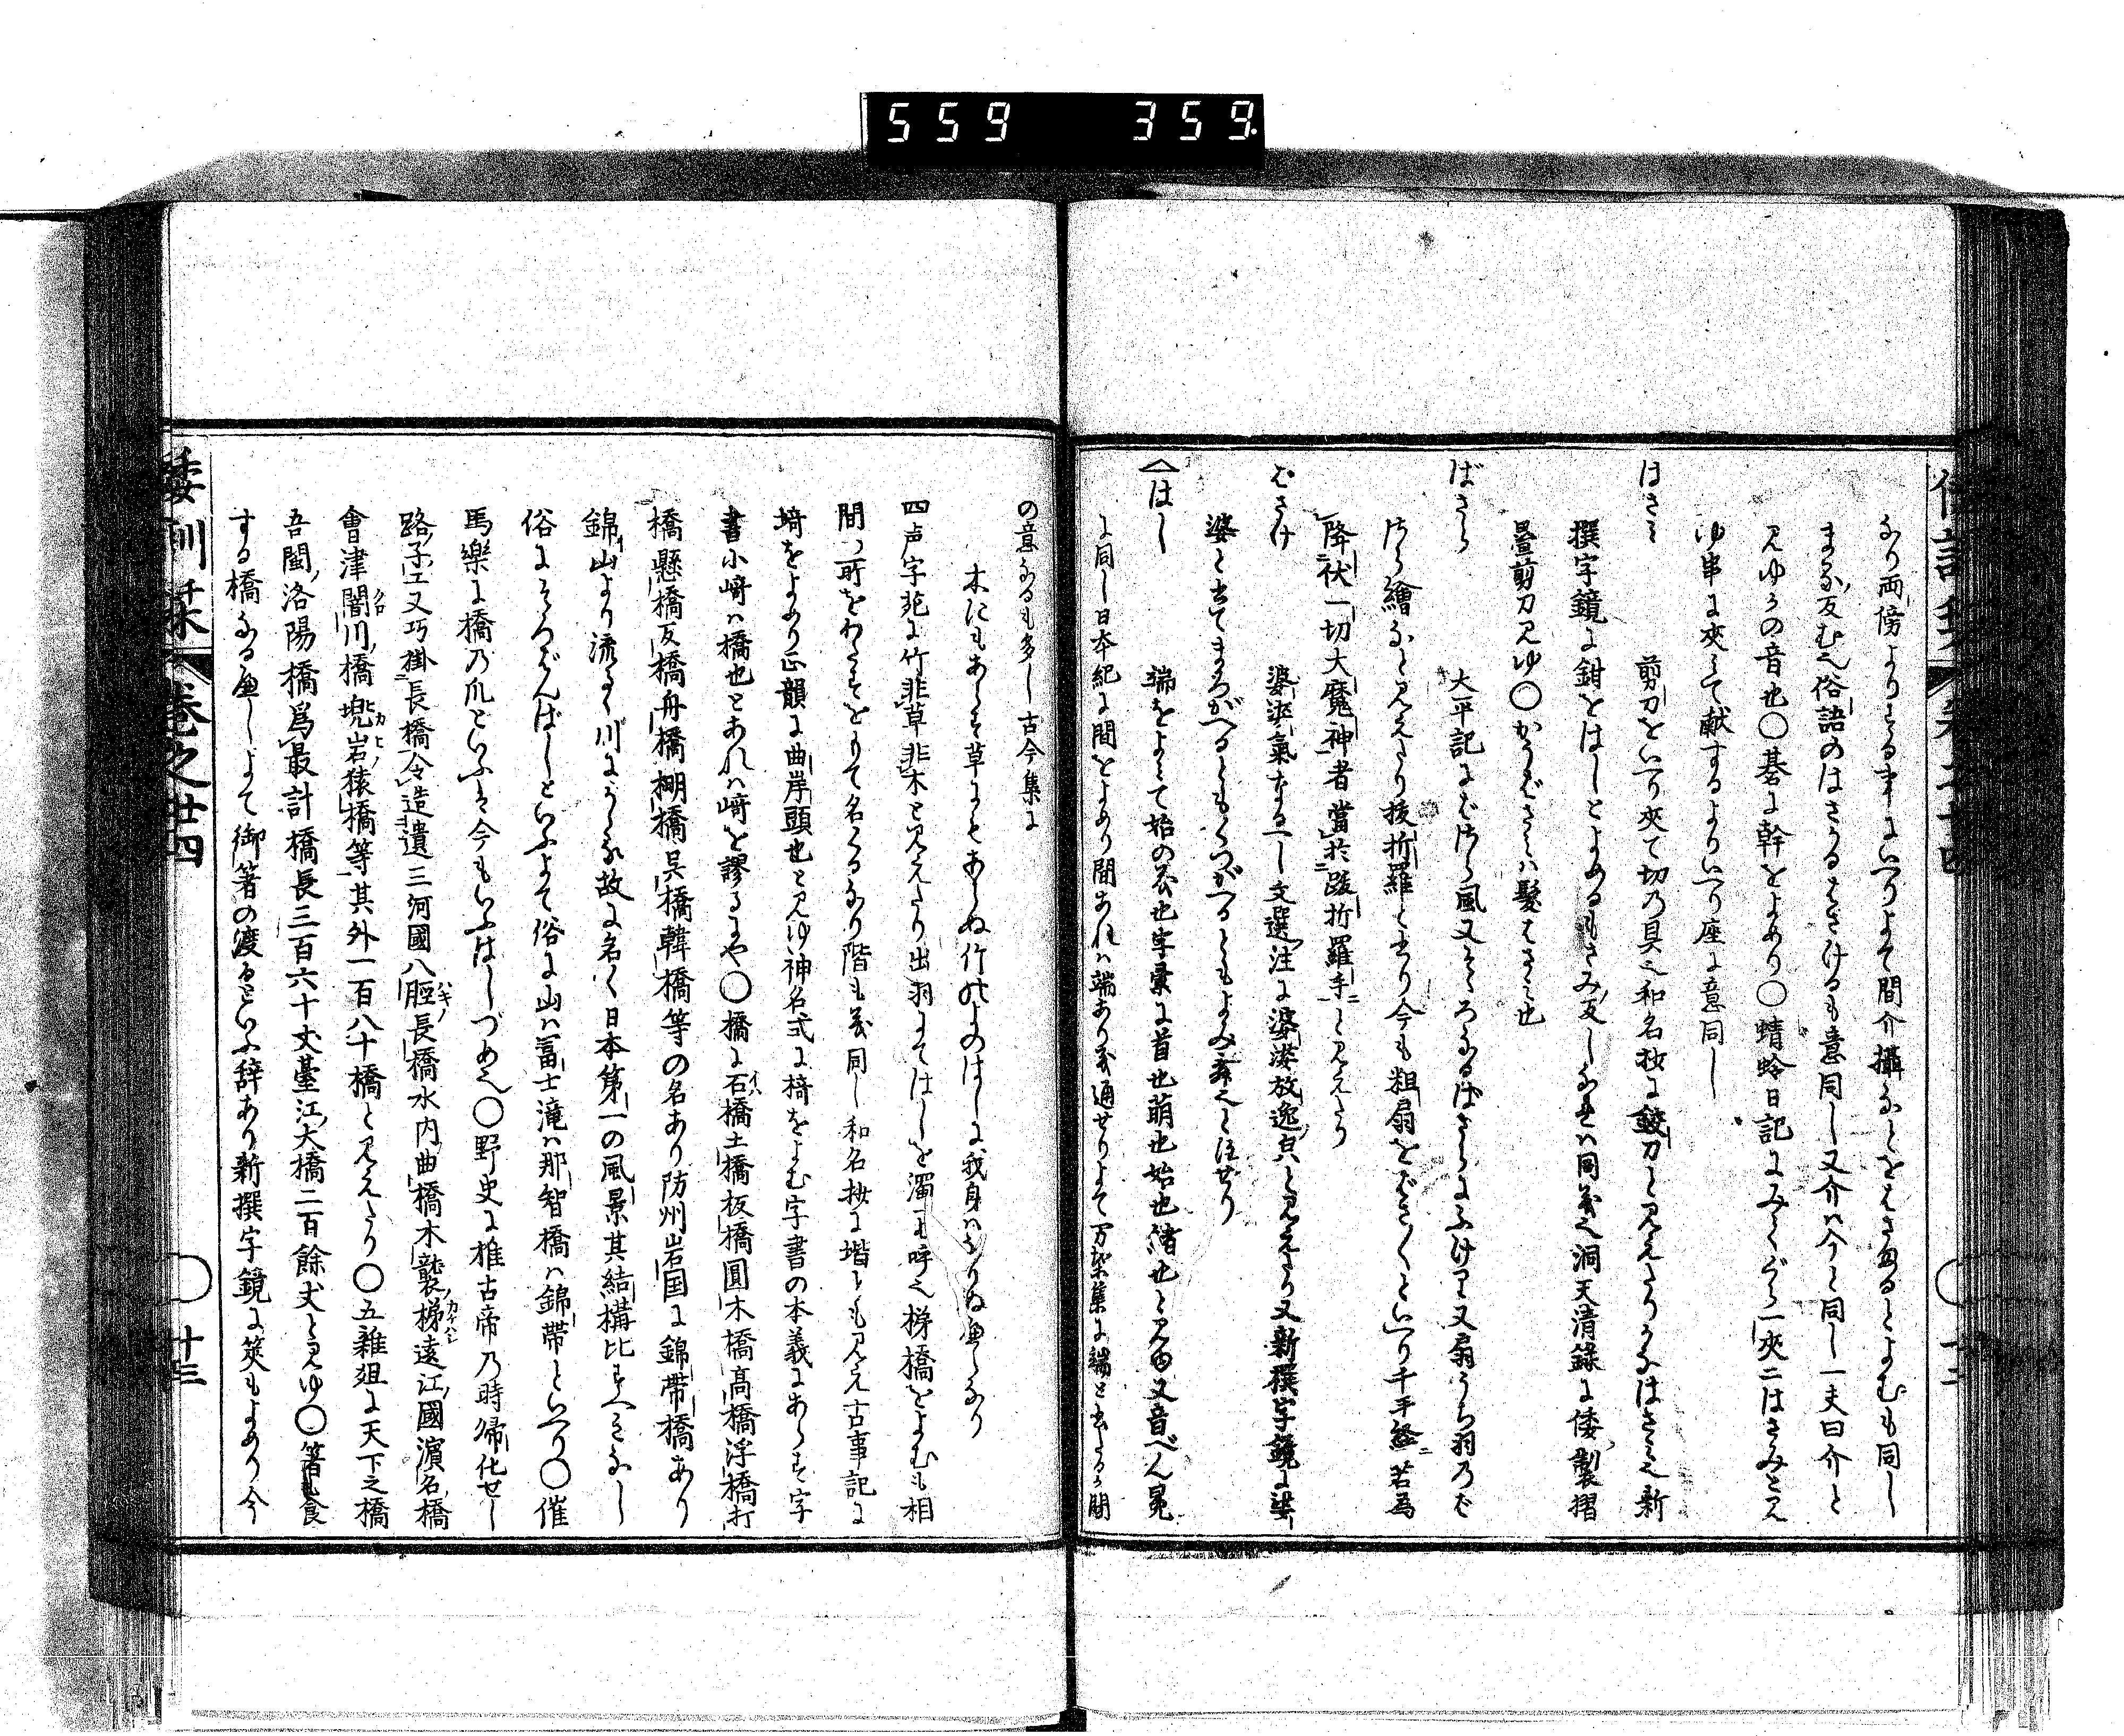 559 359.
なり両傍よりする事にいへりよて間介攝なとをはさめるとよむも同し
まな反む也俗語のはさかるはさけるも意同し又介ハ介と同し一夫曰介と
見ゆうの音也○碁に幹をよめり○蜻蛉日記にみくづら一夾二はさみと見え
ゆ串に夾みて献するよりいへり座に意同し
はさミ 剪刀をいへり夾て切乃具也和名抄に鉸刀と見えたりかなはさミ也新
撰字鏡に鉗をはしとよめるもさみ反しなれハ同義也洞天清録に倭製摺
疊剪刀見ゆ○かうばさミハ髮はさミ也
ばさら 大平記にばさら風又そゝろなるばさらにふけりて又扇うら羽乃ば
さら繪なと見えたり拔折羅と書り今も粗扇をばさくといへり千手経ニ若爲
降伏一切大魔神者當於跋折羅手ニと見えたり
ばさけ 婆娑氣なるへし文選注に婆娑放逸㒵と見えたり又新撰字鏡に婆
婆と書てまろがへるともくつがへるともよみ舞也と注せり
はし 端をよみて始の義也字彙に首也萌也始也緒也と見由又音べん冕
に同し日本紀に間をよめり間あれハ端あり義通せりよて万葉集に端と書たるか間
の意なるも多し古今集に
木にもあらす草にもあらぬ竹のよのはしに我身ハなりぬへらなり
四声字苑に竹非草非木と見えたり出羽にてはしを濁て呼也梯橋をよむも相
間つ所をわたすをりて名くるなり階も義同し和名抄に堦とも見え古事記に
埼をよめり正韻に曲岸頭也と見ゆ神名式に椅をよむ字書の本義にあらす字
書小﨑ハ橋也とあれハ﨑を謬るにや○橋に石橋土橋板橋圓木橋高橋浮橋打
橋懸橋反橋舟橋棚橋呉橋韓橋等の名あり防州岩国に錦帶橋あり
錦山より流るゝ川にかゝる故に名く日本第一の風景其結構比すへきなし
俗にそろばんばしといふよて俗に山ハ冨士滝ハ那智橋ハ錦帶といへり○催
馬樂に橋乃爪といふハ今もいふはしづめ也○野史に推古帝乃時歸化せし
路子工又巧掛長橋令造遺三河國八脛長橋水内曲橋木襲梯遠江國濱名橋
會津闇川橋兜岩猿橋等其外一百八十橋と見えたり○五雜俎に天下之橋
吾閩洛陽橋爲最計橋長三百六十丈臺江大橋二百餘丈と見ゆ○箸も食
する橋なるへしよて御箸の渡るといふ辞あり新撰字鏡に筴もよめり今
倭訓栞 卷之廿四 ○ 廿三